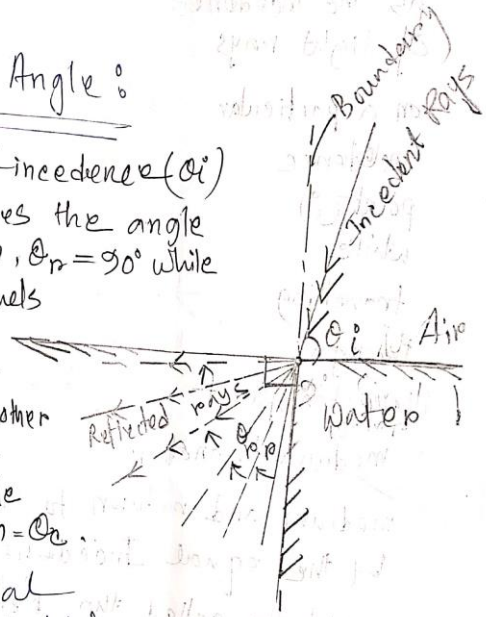 Angle :
incedence (θi)
es the angle
, θr = 90° while
nels
other
e
n = θc.
al
Boundary
Incedent Rays
θi
Air
Water
Reflected rays
θr